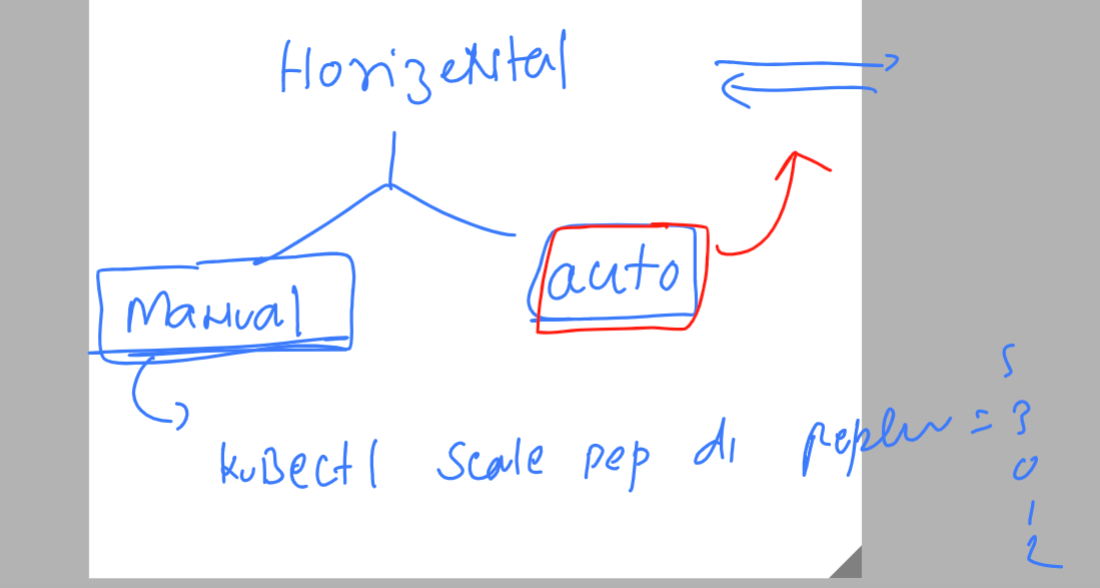 Horizental
Manual
auto
kubectl scale pep d1 = 3
5
0
1
2